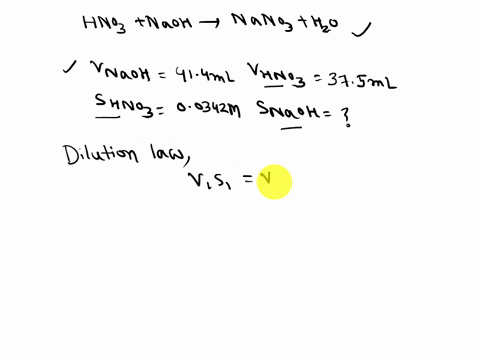 HNO₃ + NaOH → NaNO₃ + H₂O ✓
✓ V NaOH = 41.4mL V HNO₃ = 37.5mL
S HNO₃ = 0.0342M S NaOH = ?
Dilution law,
V₁S₁ = V